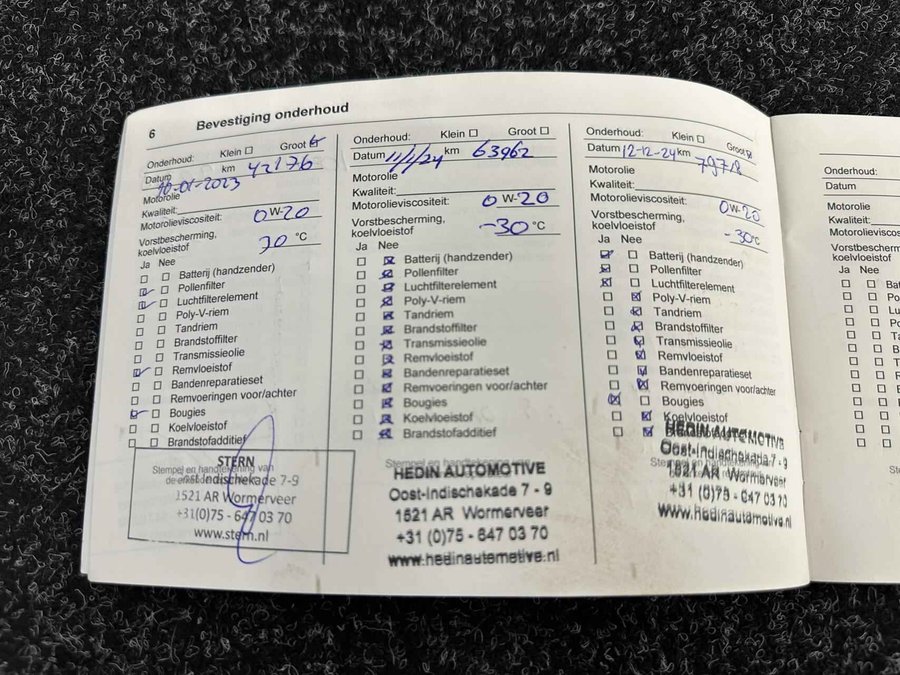 6 Bevestiging onderhoud
Onderhoud: Klein Groot
Datum 10-01-2023 km 42176
Motorolie
Kwaliteit:
Motorolieviscositeit: 0W-20
Vorstbescherming,
koelvloeistof 30 °C
Ja Nee
Batterij (handzender)
Pollenfilter
Luchtfilterelement
Poly-V-riem
Tandriem
Brandstoffilter
Transmissieolie
Remvloeistof
Bandenreparatieset
Remvoeringen voor/achter
Bougies
Koelvloeistof
Brandstofadditief
Stempel en handtekening van
STERN
Oost-Indischekade 7-9
1521 AR Wormerveer
+31(0)75 - 647 03 70
www.stern.nl
Onderhoud: Klein Groot
Datum 11/1/24 km 63962
Motorolie
Kwaliteit:
Motorolieviscositeit: 0W-20
Vorstbescherming,
koelvloeistof -30 °C
Ja Nee
Batterij (handzender)
Pollenfilter
Luchtfilterelement
Poly-V-riem
Tandriem
Brandstoffilter
Transmissieolie
Remvloeistof
Bandenreparatieset
Remvoeringen voor/achter
Bougies
Koelvloeistof
Brandstofadditief
HEDIN AUTOMOTIVE
Oost-Indischekade 7 - 9
1521 AR Wormerveer
+31 (0)75 - 647 03 70
www.hedinautomotive.nl
Onderhoud: Klein Groot
Datum 12-12-24 km
Motorolie
Kwaliteit:
Motorolieviscositeit: 0W-20
Vorstbescherming,
koelvloeistof -30°C
Ja Nee
Batterij (handzender)
Pollenfilter
Luchtfilterelement
Poly-V-riem
Tandriem
Brandstoffilter
Transmissieolie
Remvloeistof
Bandenreparatieset
Remvoeringen voor/achter
Bougies
Koelvloeistof
HEDIN AUTOMOTIVE
Oost-Indischekade 7 - 9
1521 AR Wormerveer
+31 (0)75 - 647 03 70
www.hedinautomotive.nl
Onderhoud:
Datum
Motorolie
Kwaliteit:
Motorolieviscositeit
Vorstbescherm
koelvloeistof
Ja Nee